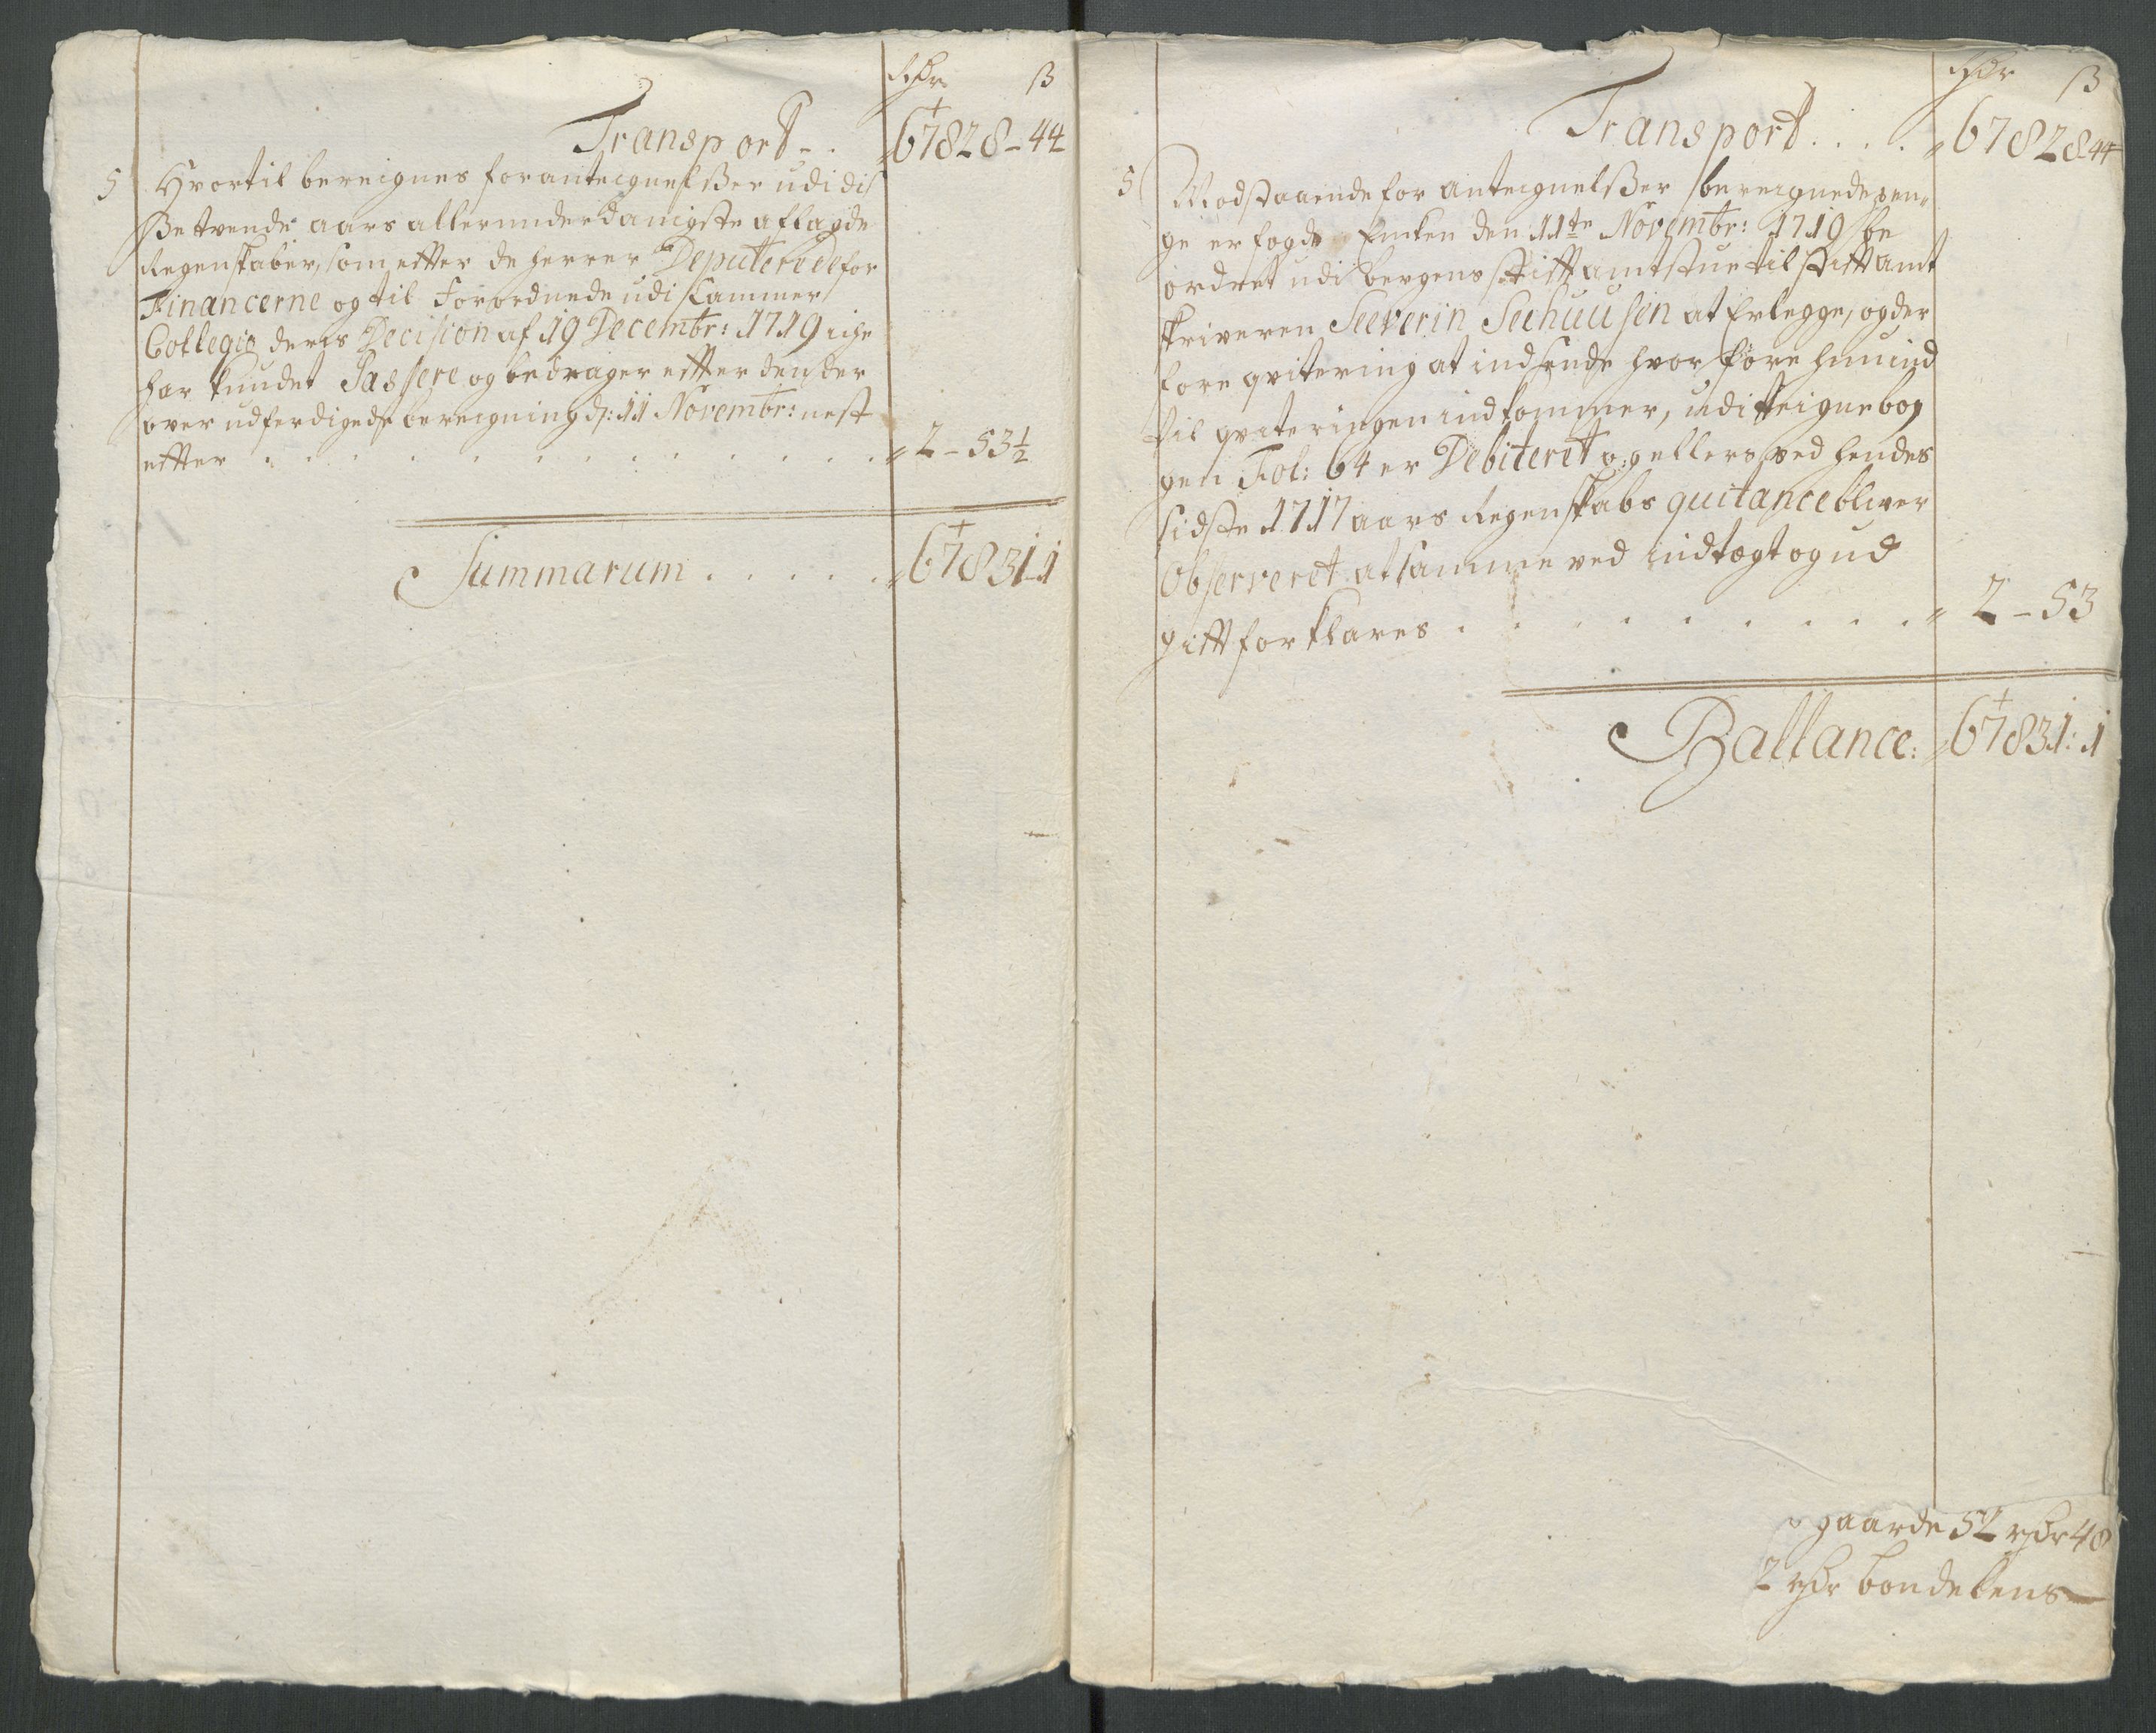 Rdr ß
Transport. . „67828-44
5 Hvortil bereignes for anteignelßer udi dis
ße tvende aars allerunderdanigste aflagde
Regenskaber, som effter de herrer Deputerede for
Financerne og til Forordnede udi Cammer
Collegio deris Decision af 19 Decembr: 1719 iche
har kundet Passere og bedrager effter den der
over udferdigede bereigning d: 11 Novembr: nest
effter . . . . . . . . . . . „2-53½
Summarum . . . . . „67831-1
Rdr ß
Transport. . . . „67828-44
5 Modstaaende for anteignelßer bereignede pen-
ge er fogde Encken den 11te Novembr: 1719 be
ordret udi bergens stifft amtstue til stifft amt
skriveren Severin Seehuusen at Erlegge, og der
fore qvitering at indsende hvorfore hun ind
til qviteringen indkommer, udi teignebog
gen Fol: 64 er Debiteret og ellers ved hendes
sidste 1717 aars Regenskabs quitance bliver
Observeret at samme ved indtegt og ud
gifft forklares . . . . . . . . . „2-53
Ballance: „67831:1
gaarde 52 rdr 48
2 rdr bondelens